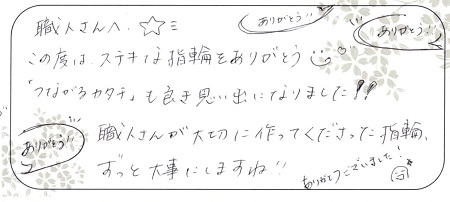 職人さんへ.
ありがとう!!
ありがとう!
この度は、ステキな指輪をありがとう
「つながるカタチ」も良き思い出になりました!!
ありがとう!!
職人さんが大切に作ってくださった指輪、
ずっと大事にしますね!!
ありがとうございました!